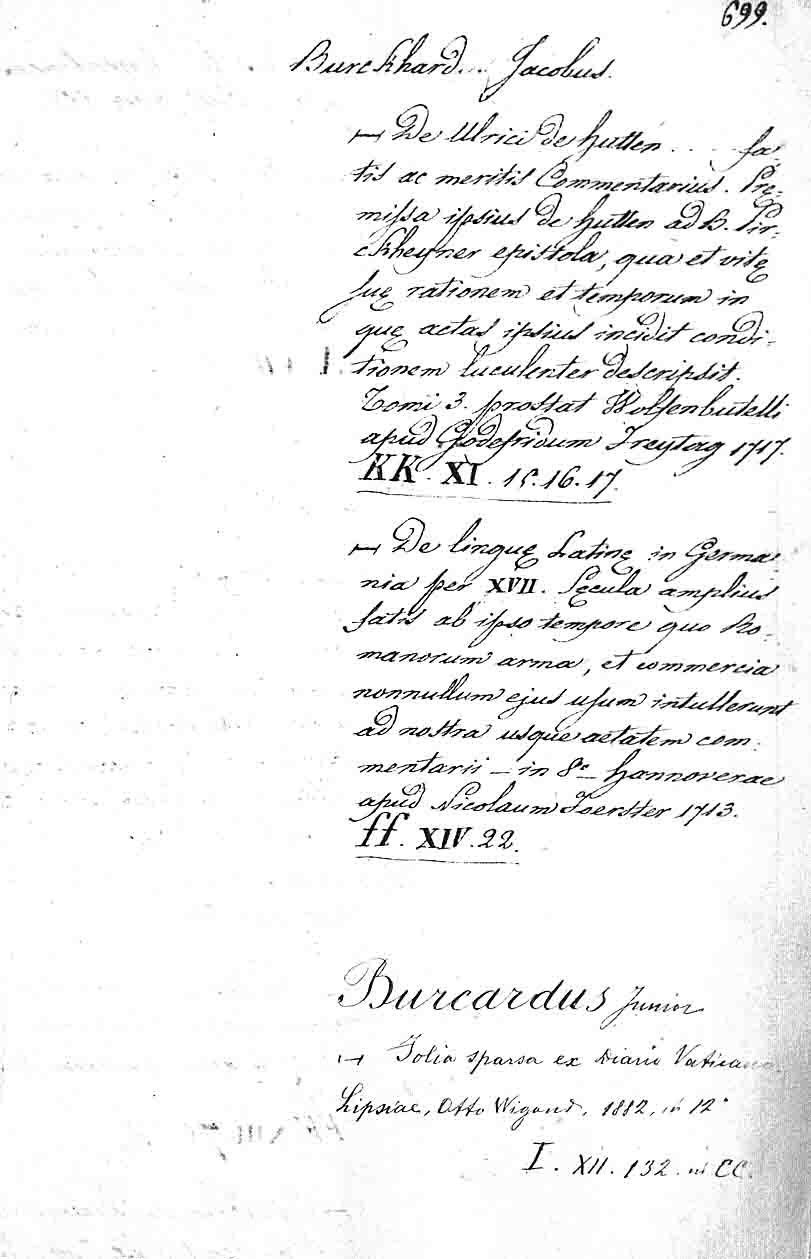 699.
Burckhard... Jacobus.
— De Ulrici de Hutten.... fa-
tis ac meritis Commentarius. Prę-
missa ipsius de Hutten ad B. Pir-
ckheyner epistola, qua et vitę
suę rationem et temporum in
quę aetas ipsius incidit condi-
tionem luculenter descripsit.
Tomi 3. prostat Wolfenbutelli
apud Godefridum Freytag 1717.
KK. XI. 15. 16. 17.
— De linguę Latinę in Germa-
nia per XVII. Sęcula amplius
fatis ab ipso tempore quo Ro-
manorum arma, et commercia
nonnullum ejus usum intullerunt
ad nostra usque aetatem com-
mentarii — in 8º Hannoverae
apud Nicolaum Foerster 1713.
ff. XIV. 22.
Burcardus Junior
— Folia sparsa ex Diario Vaticano.
Lipsiae, Otto Wigand, 1882, in 12º
I. XII. 132. in CC.